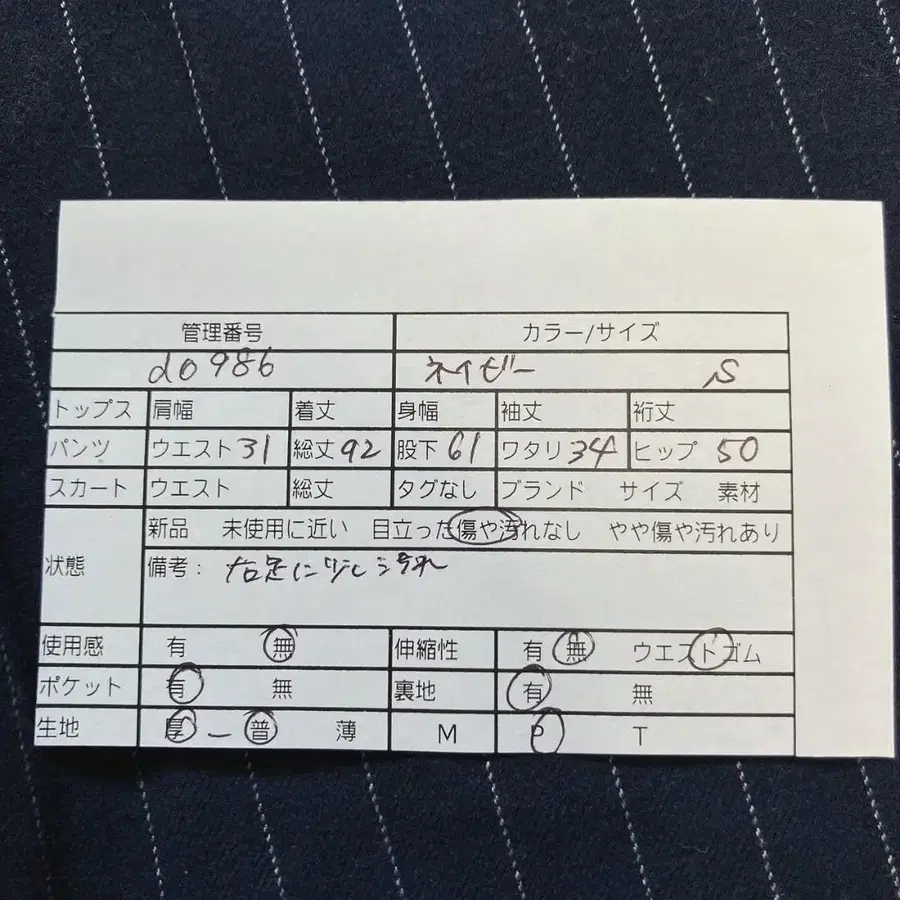 管理番号 カラー/サイズ
d0986 ネイビー S
トップス 肩幅 着丈 身幅 袖丈 裄丈
パンツ ウエスト 31 総丈 92 股下 61 ワタリ 34 ヒップ 50
スカート ウエスト 総丈 タグなし ブランド サイズ 素材
新品 未使用に近い 目立った傷や汚れなし やや傷や汚れあり
状態 備考: 右足に少し汚れ
使用感 有 無 伸縮性 有 無 ウエストゴム
ポケット 有 無 裏地 有 無
生地 厚 - 普 薄 M P T